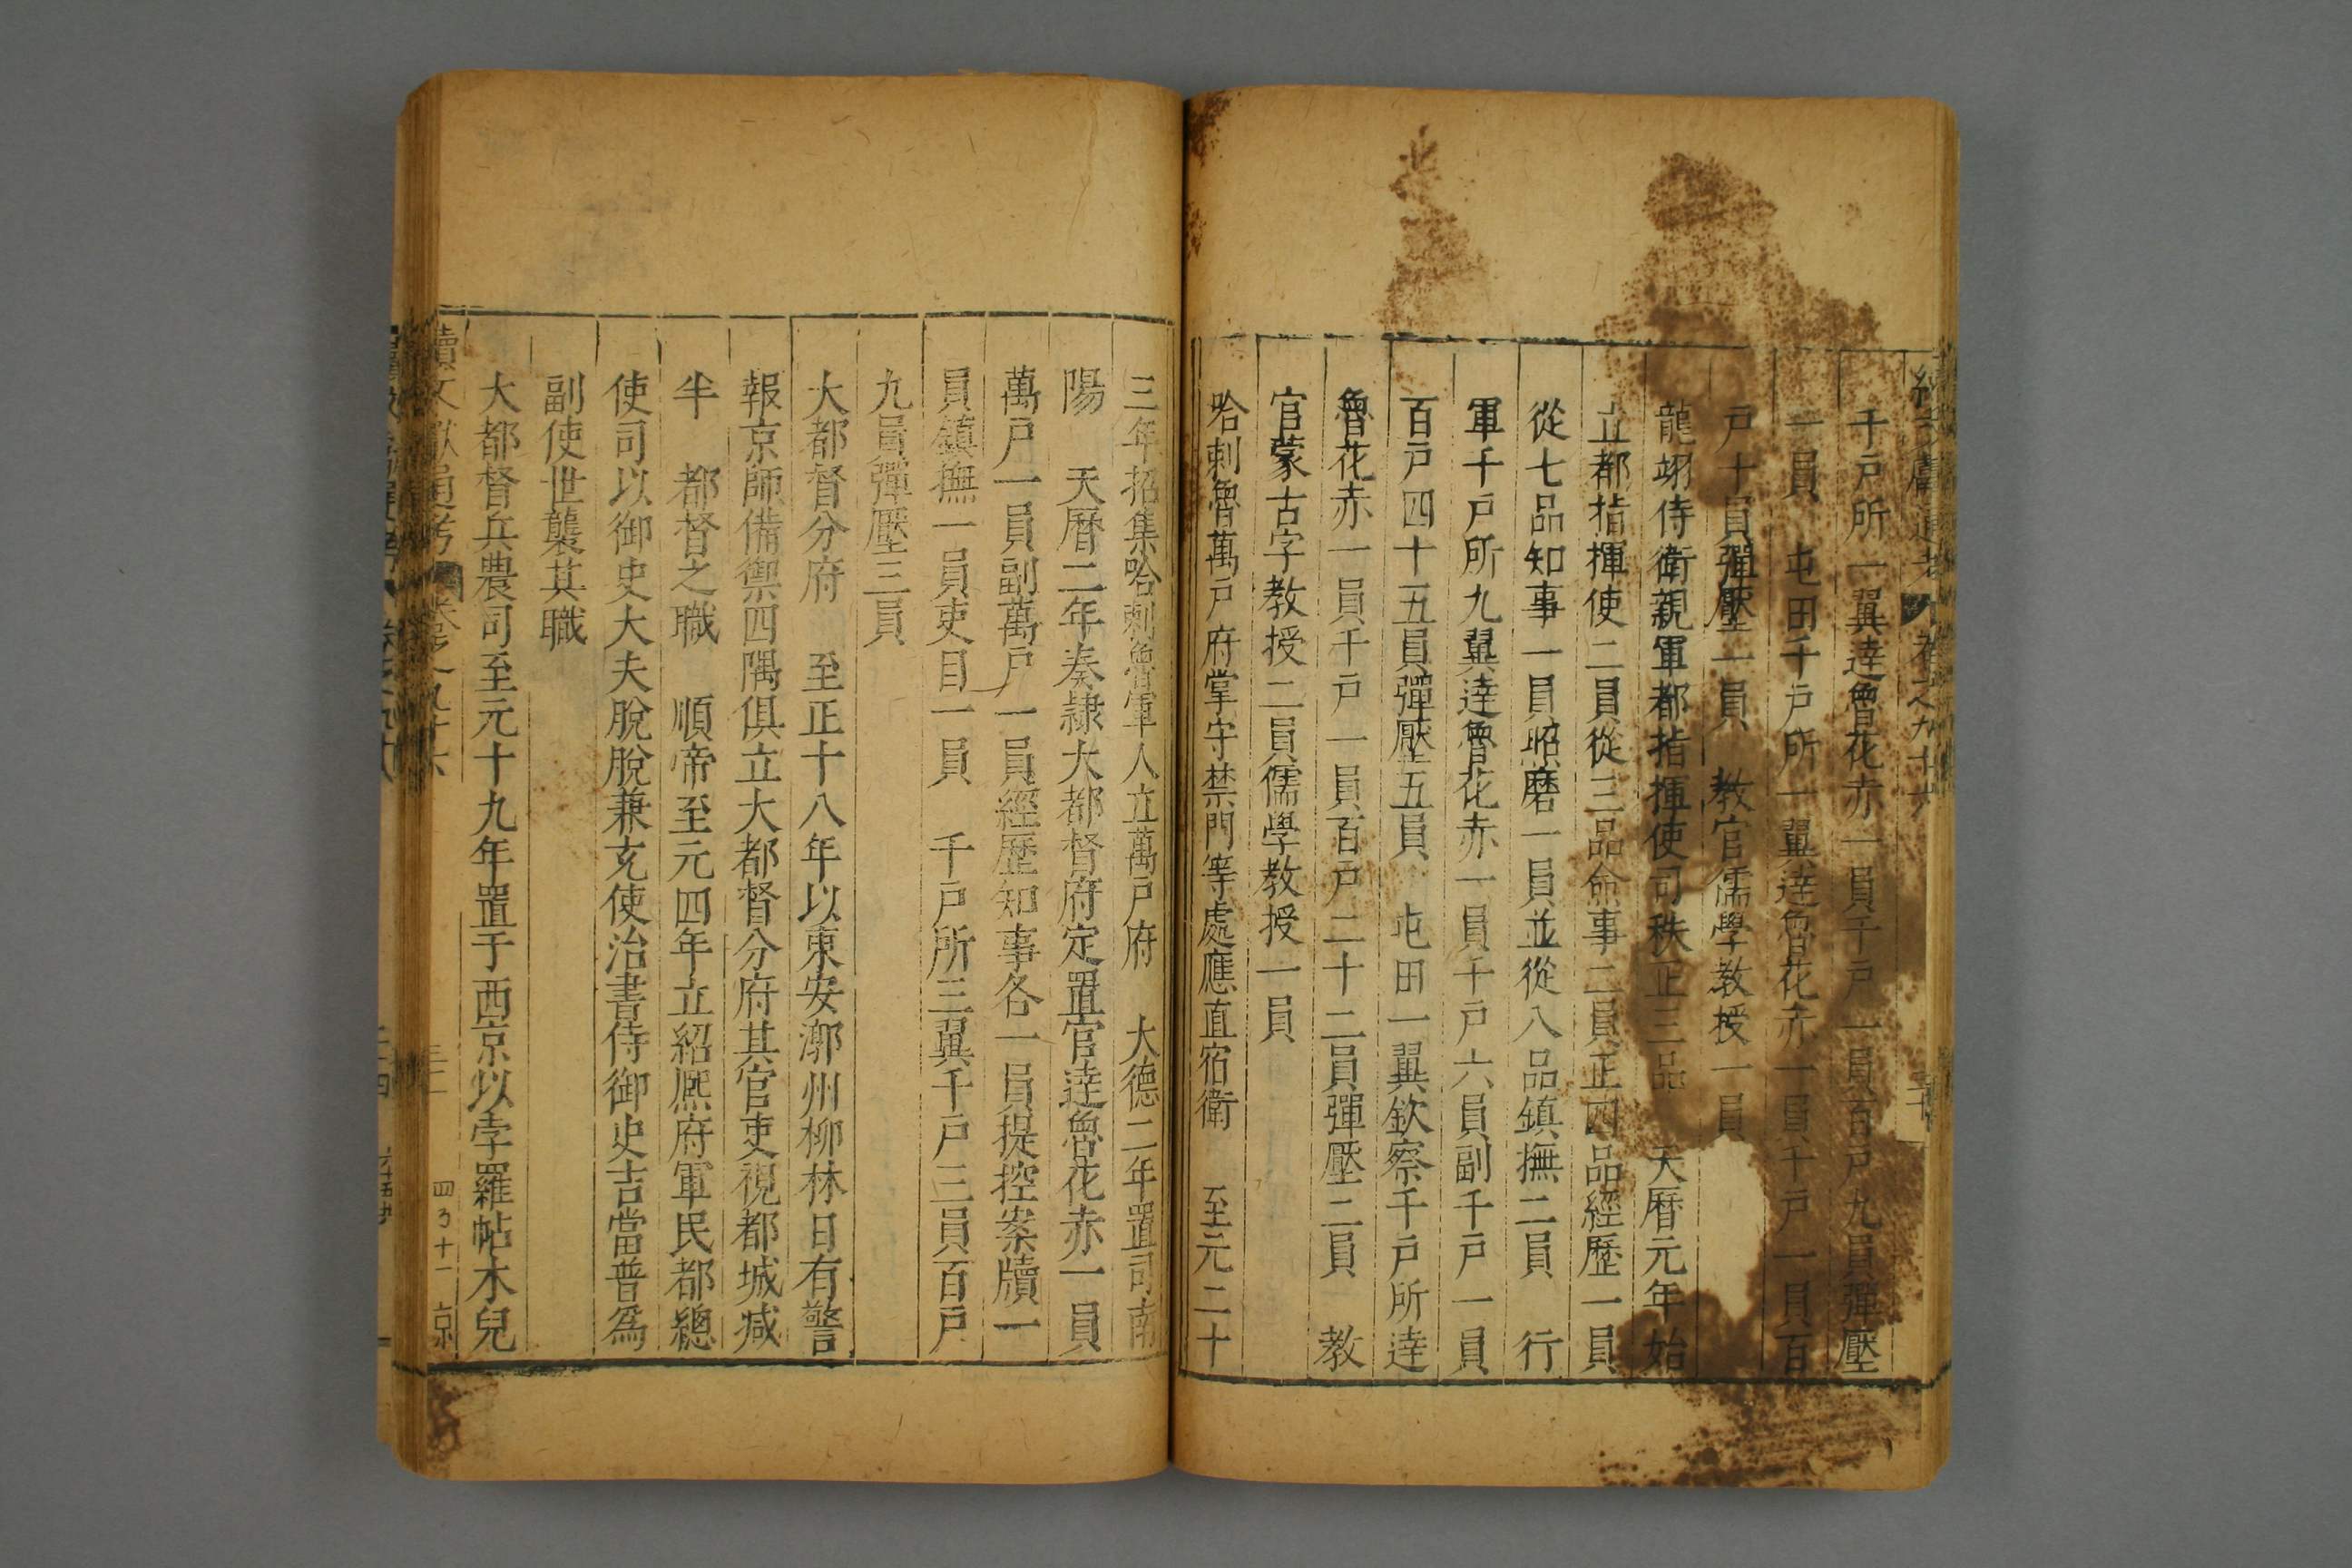 千戶所一翼達魯花赤一員千戶一員百戶九員彈壓
一員 屯田千戶所一翼達魯花赤一員千戶一員百
戶十員彈壓一員 教官儒學教授一員
龍翊侍衛親軍都指揮使司秩正三品 天曆元年始
立都指揮使二員從三品僉事二員正四品經歷一員
從七品知事一員照磨一員並從八品鎮撫二員 行
軍千戶所九翼達魯花赤一員千戶六員副千戶一員
百戶四十五員彈壓五員 屯田一翼欽察千戶所達
魯花赤一員千戶一員百戶二十二員彈壓二員 教
官蒙古字教授二員儒學教授一員
哈剌魯萬戶府掌守禁門等處應直宿衛 至元二十
三年招集哈剌魯軍人立萬戶府 大德二年置司南
陽 天曆二年奏隸大都督府定置官達魯花赤一員
萬戶一員副萬戶一員經歷知事各一員提控案牘一
員鎮撫一員吏目一員 千戶所三翼千戶三員百戶
九員彈壓三員
大都督分府 至正十八年以東安漷州柳林日有警
報京師備禦四隅俱立大都督分府其官吏視都城減
半 都督之職 順帝至元四年立紹熙府軍民都總
使司以御史大夫脫脫兼充使治書侍御史吉當普為
副使世襲其職
大都督兵農司至元十九年置于西京以孛羅帖木兒
續文獻通考 卷之九十六